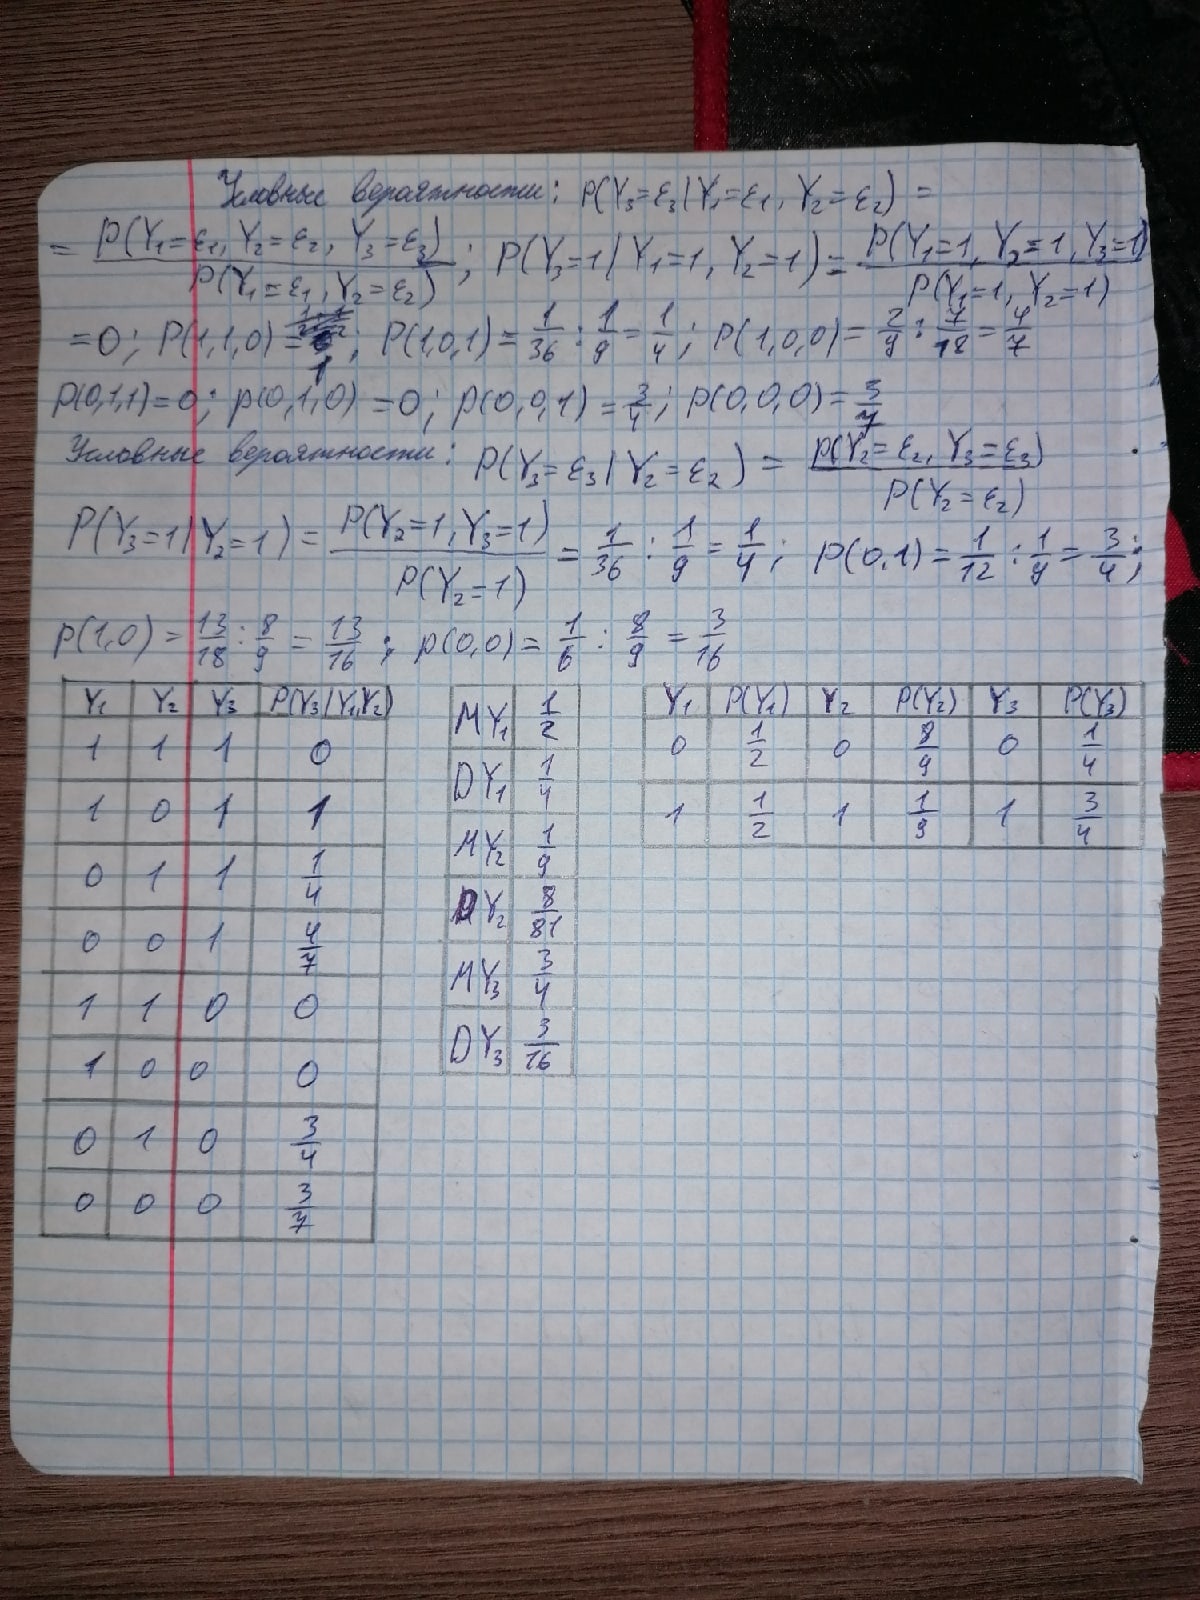 Условные вероятности: P(Y₃=ε₃|Y₁=ε₁, Y₂=ε₂) =
= P(Y₁=ε₁, Y₂=ε₂, Y₃=ε₃)/P(Y₁=ε₁, Y₂=ε₂); P(Y₃=1|Y₁=1, Y₂=1) = P(Y₁=1, Y₂=1, Y₃=1)/P(Y₁=1, Y₂=1)
=0; P(1,1,0) = 1; P(1,0,1) = 1/36 : 1/9 = 1/4; P(1,0,0) = 2/9 : 7/18 = 4/7
P(0,1,1)=0; P(0,1,0) =0; P(0,0,1) = 3/4; P(0,0,0) = 3/7
Условные вероятности: P(Y₃=ε₃|Y₂=ε₂) = P(Y₂=ε₂, Y₃=ε₃)/P(Y₂=ε₂)
P(Y₃=1|Y₂=1) = P(Y₂=1, Y₃=1)/P(Y₂=1) = 1/36 : 1/9 = 1/4; P(0,1) = 1/12 : 1/9 = 3/4;
P(1,0) = 13/18 : 8/9 = 13/16; P(0,0) = 1/6 : 8/9 = 3/16
Y₁ Y₂ Y₃ P(Y₃|Y₁,Y₂)
1 1 1 0
1 0 1 1
0 1 1 1/4
0 0 1 4/7
1 1 0 0
1 0 0 0
0 1 0 3/4
0 0 0 3/7
MY₁ 1/2
DY₁ 1/4
MY₂ 1/9
DY₂ 8/81
MY₃ 3/4
DY₃ 3/16
Y₁ P(Y₁) Y₂ P(Y₂) Y₃ P(Y₃)
0 1/2 0 8/9 0 1/4
1 1/2 1 1/9 1 3/4